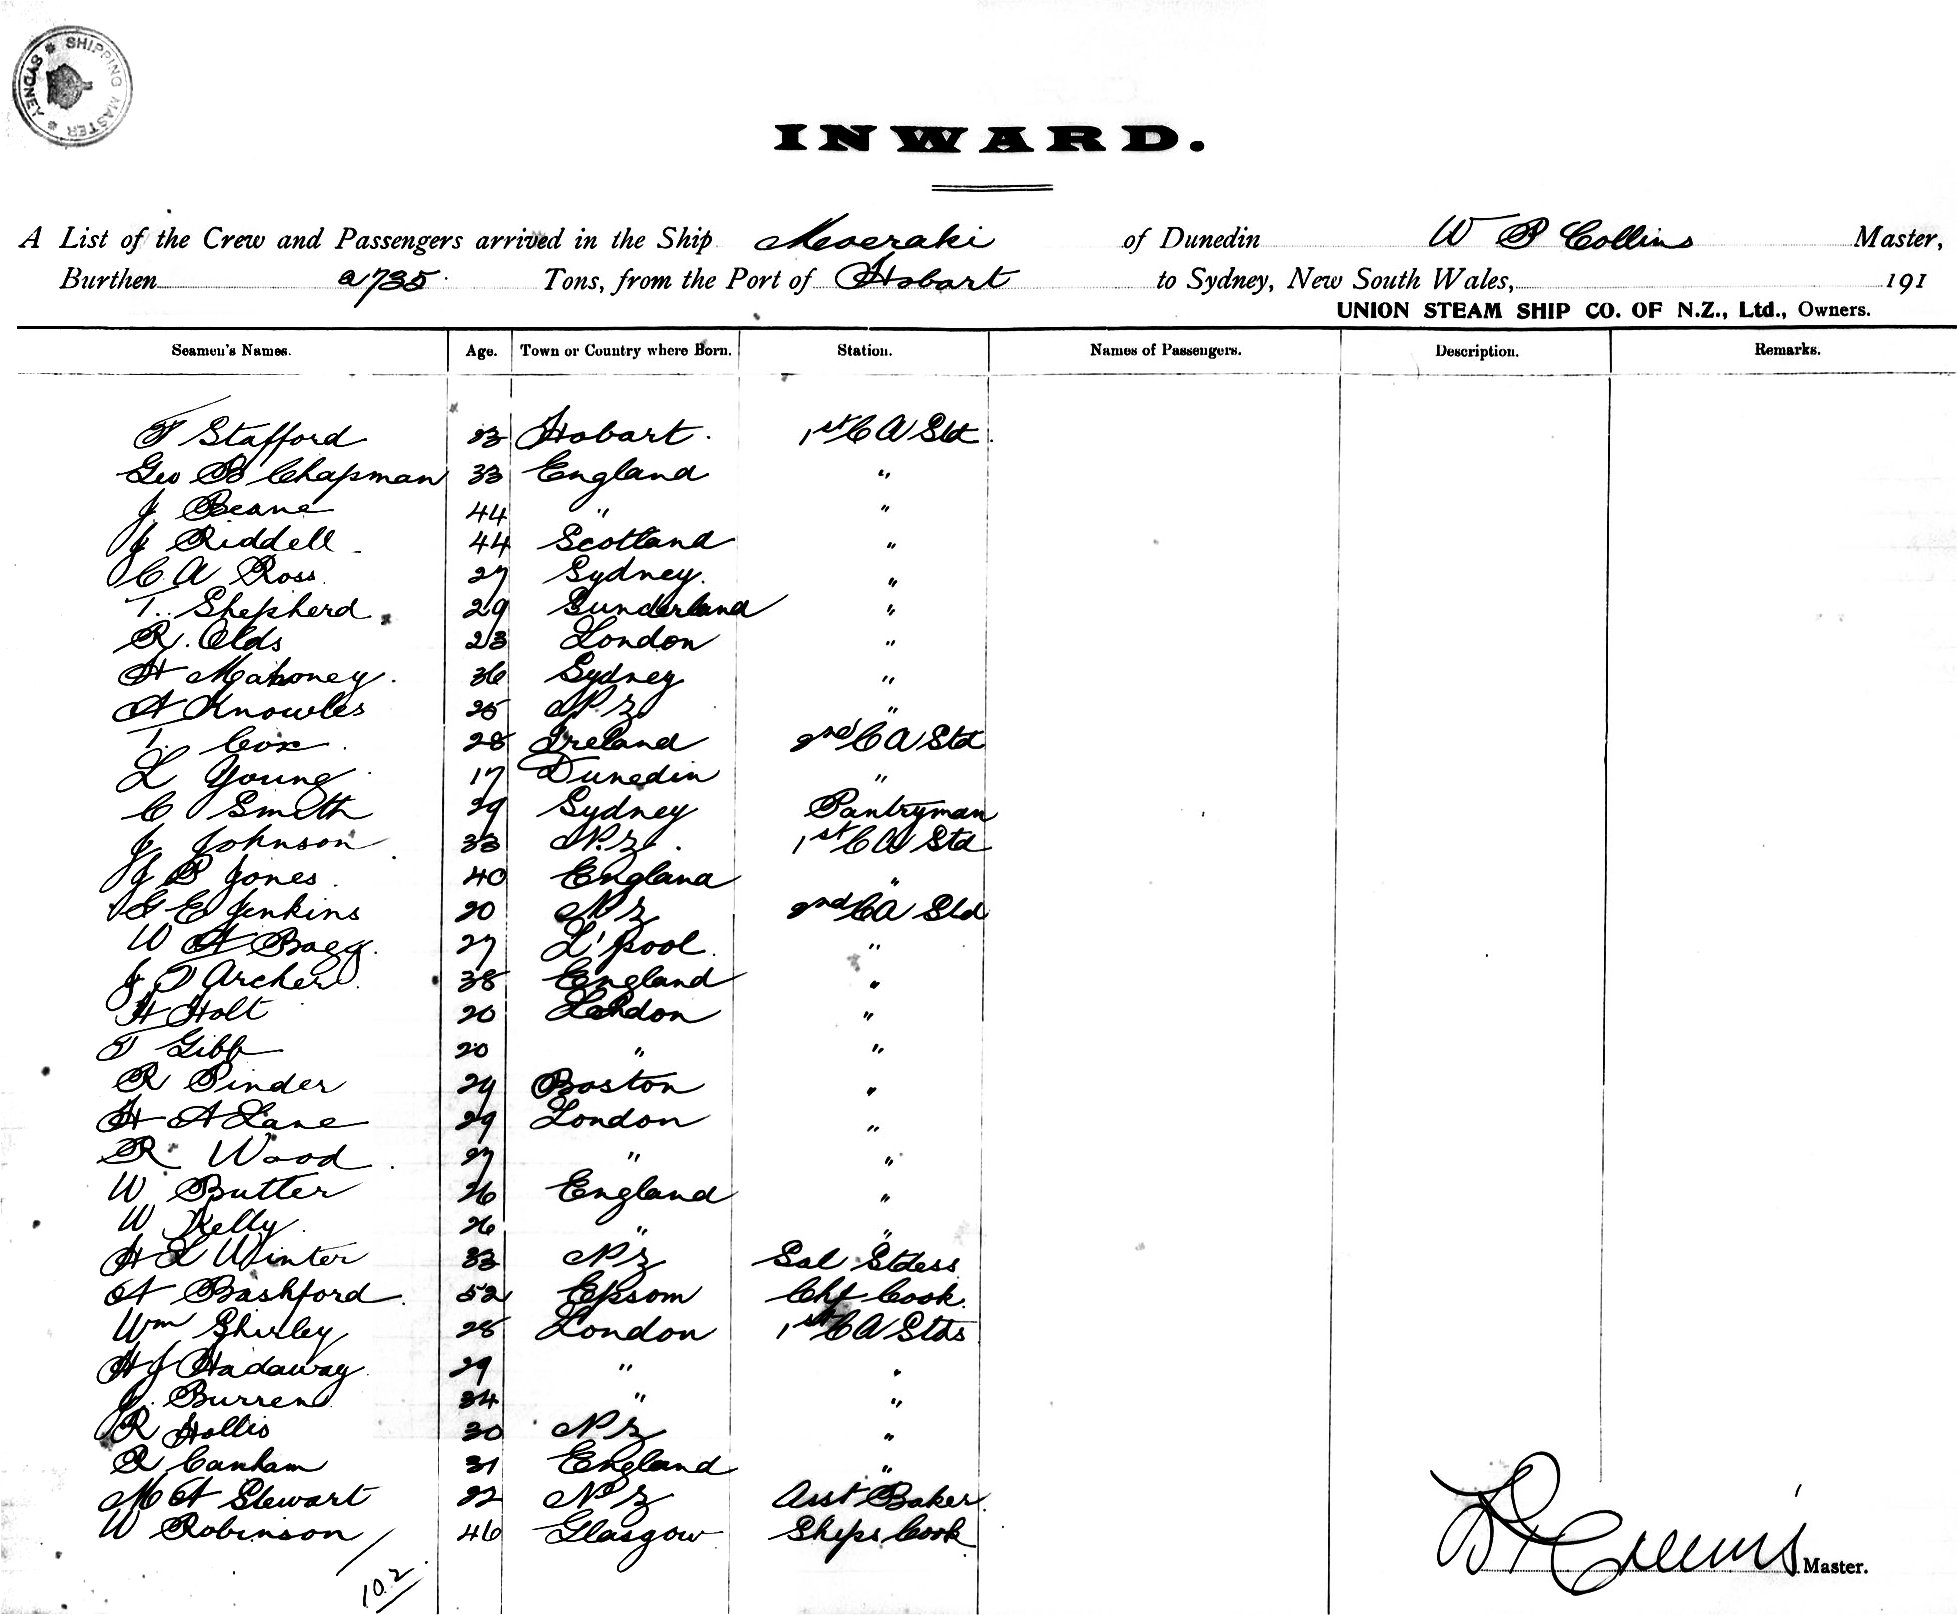 SHIPPING MASTER SYDNEY
INWARD.
A List of the Crew and Passengers arrived in the Ship Moeraki of Dunedin W P Collins Master,
Burthen 2735 Tons, from the Port of Hobart to Sydney, New South Wales, 191
UNION STEAM SHIP CO. OF N.Z., Ltd., Owners.
Seamen's Names. Age. Town or Country where Born. Station. Names of Passengers. Description. Remarks.
T Stafford Hobart. 1st C A Std.
Geo B Chapman 33 England "
J Beane 44 " "
J Riddell 44 Scotland "
C A Ross 27 Sydney. "
T. Shepherd 29 Sunderland "
R. Olds 23 London "
H Mahoney. 36 Sydney "
A Knowles 25 N Z "
T. Cox. 28 Ireland 2nd C A Std
L Young 17 Dunedin "
C Smith 29 Sydney Pantryman
J Johnson 33 N.Z. 1st C A Std
J P Jones 40 England "
G E Jenkins 20 N Z 2nd C A Std
W A Bagg. 27 L'pool. "
J T Archer. 38 England "
H Holt 20 London "
T Gibb 20 " "
R Pinder 29 Boston "
H A Lane 29 London "
R Wood. 27 " "
W Butter 26 England "
W Kelly. 26 " "
H L Winter 33 N Z Sal Stdess
A Bashford. 52 Epsom Chf Cook.
Wm Shirley 28 London 1st C A Stds
H J Hadaway. 29 " "
J. Burren 34 " "
R Hollis 30 N Z "
R Canham 31 England "
M A Stewart N Z Asst Baker.
W Robinson 46 Glasgow Ships Cook
102
W P Collins Master.